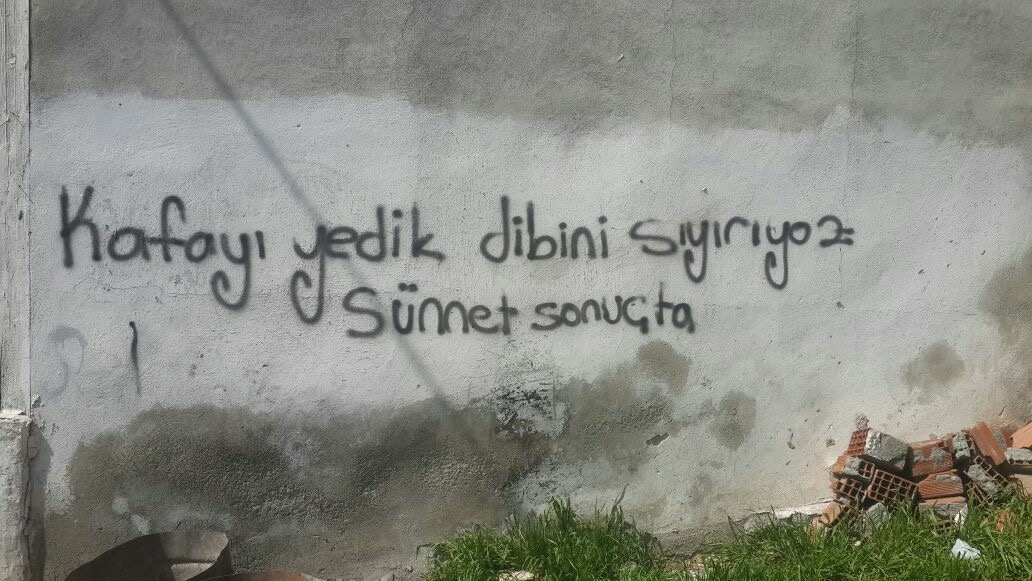 Kafayı yedik dibini sıyırıyoz
Sünnet sonuçta